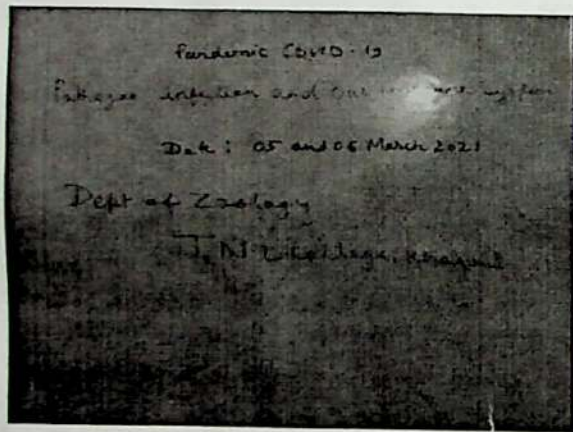 Pandemic COVID-19
Pathogen infection and our immune system
Date : 05 and 06 March 2021
Dept of Zoology
J. N. College,